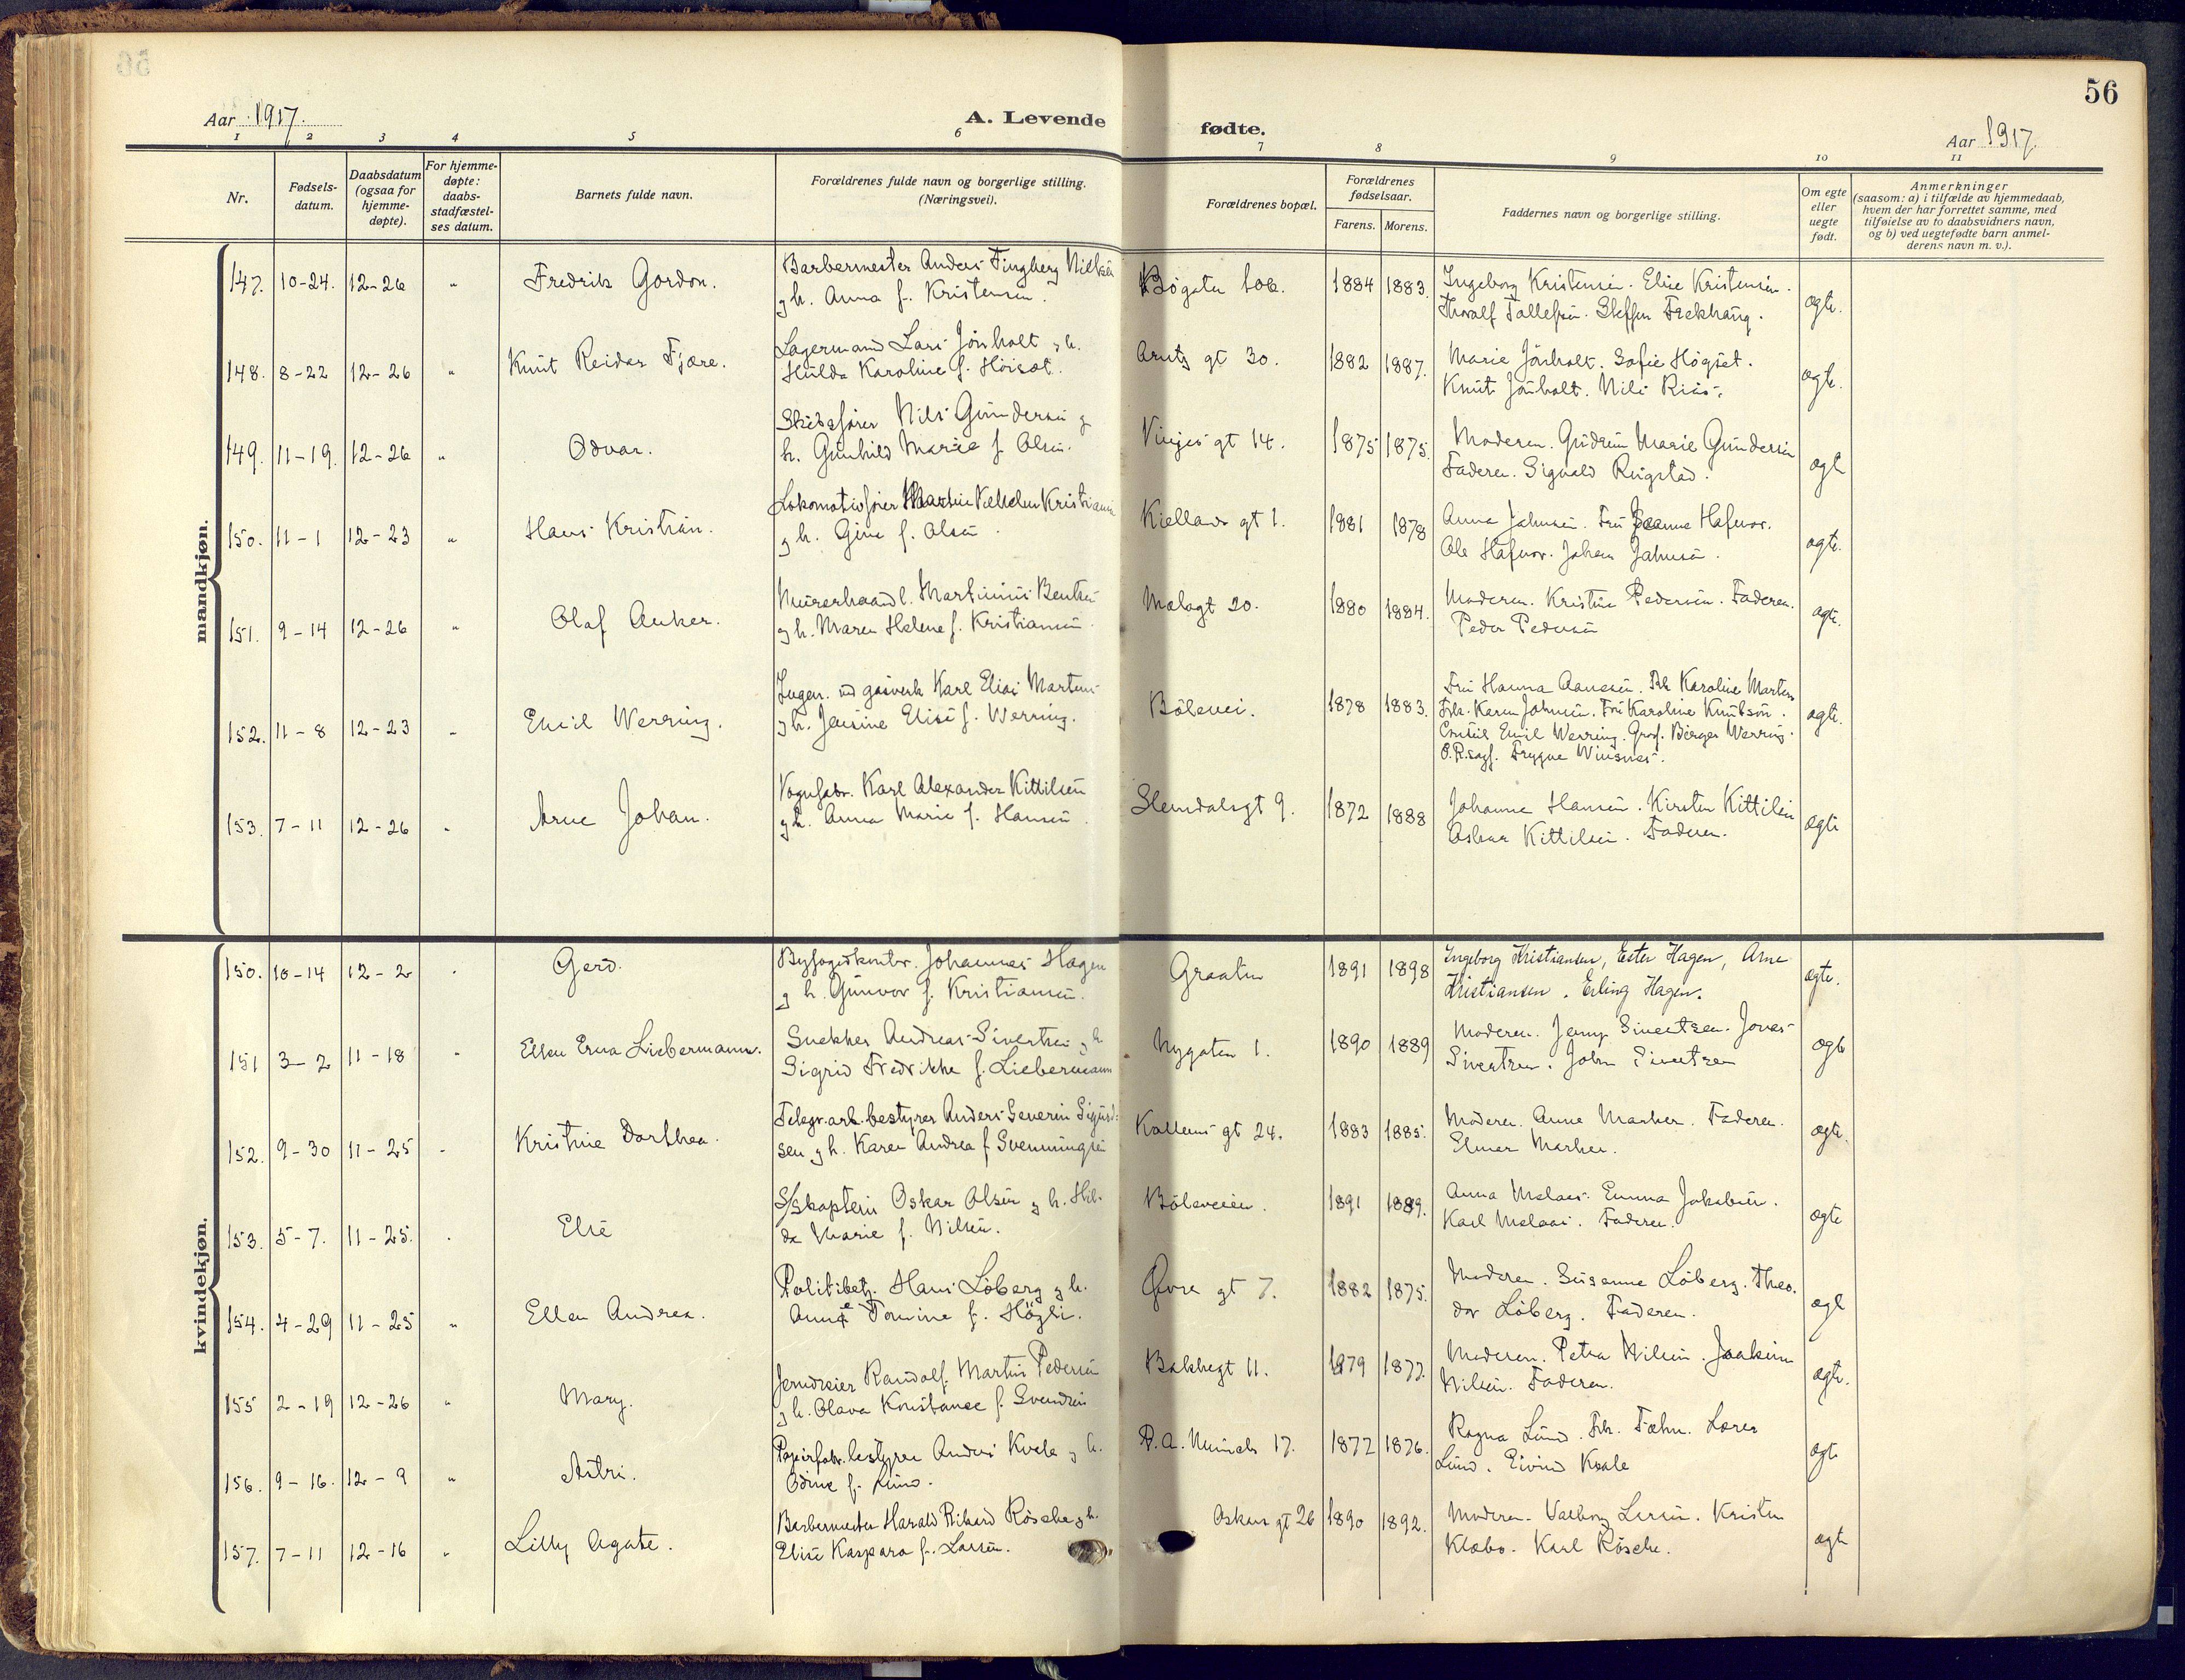 56
Aar 1917.
A. Levende fødte.
Aar 1917.
1 2 3 4 5 6 7 8 9 10 11
Nr.
Fødsels-
datum.
Daabsdatum
(ogsaa for
hjemme-
døpte).
For hjemme-
døpte:
daabs-
stadfæstel-
ses datum.
Barnets fulde navn.
Forældrenes fulde navn og borgerlige stilling.
(Næringsvei).
Forældrenes bopæl.
Forældrenes
fødselsaar.
Farens. Morens.
Faddernes navn og borgerlige stilling.
Om egte
eller
uegte
født.
Anmerkninger
(saasom: a) i tilfælde av hjemmedaab,
hvem der har forrettet samme, med
tilføielse av to daabsvidners navn,
og b) ved uegtefødte barn anmel-
derens navn m. v.).
mandkjøn.
147. 10-24. 12-26 " Fredrik Gordon.
Barbermester Anders Tingberg Nilsen
g h. Anna f. Kristensen.
Bögaten 106. 1884 1883.
Ingeborg Kristensen. Elise Kristensen.
Thoralf Tallefsen. Steffen
ægte.
148. 8-22 12-26 " Knut Reidar Fjære.
Lagermand Lars Jönholt g h.
Hulda Karoline f. Höisæt.
Arntz gt 30. 1882 1887.
Marie Jönholt. Sofie Högset.
Knut Jönholt. Nils Riis.
ægte.
149. 11-19. 12-26 " Odvar.
Skibsfører Nils Gundersen g
h. Gunhild Marie f. Olsen.
Vinjes gt 14. 1875 1875.
Moderen. Gudrun Marie Gundersen
Faderen. Sigvald Ringstad.
ægte
150. 11-1 12-23 " Hans Kristian.
Lokomotivfører Vilhelm Kristiansen
g h. Gina f. Olsen.
Kiellands gt 1. 1881 1878
Anna Jahnsen. Fru Hafnor.
Ole Hafnor. Johan Jahnsen.
ægte.
151. 9-14 12-26 " Olaf Anker.
Murerhaandl. Martinius Bentsen
g h. Maren Helene f. Kristiansen.
Malagt 20. 1880 1884.
Moderen. Kristine Pedersen. Faderen.
Peder Pedersen
ægte.
152. 11-8 12-23 " Emil Werring.
Ingen. ved gasverk Karl Elias Martens
g h. Jensine Elise f. Werring.
Bölevei. 1878 1883.
Fru Hanna Aanesen. Frk Karoline Martens
Frk. Karen Johnsen. Fru Karoline Knutson.
Emil Werring. Gros. Birger Werring.
O.R.sagf. Trygve Wiisnes.
ægte.
153. 7-11 12-26 " Arne Johan.
Vognfabr. Karl Alexander Kittilsen
g h. Anna Marie f. Hansen.
Slemdalsgt 9. 1872 1888
Johanne Hansen. Kirsten Kittilsen
Oskar Kittilsen. Faderen.
ægte
kvindekjøn.
150. 10-14 12-2 " Gerd.
Byfogedkontor. Johannes Hagen
g h. Gunvor f. Kristiansen.
Graaten 1891 1898
Ingeborg Kristiansen, Ester Hagen, Arne
Kristiansen. Erling Hagen.
ægte.
151 3-2 11-18 " Ellen Erna Liebermann.
Snekker Andreas Sivertsen g h.
Sigrid Fredrikke f. Liebermann
Nygaten 1. 1890 1889
Moderen. Jenny Sivertsen. Jonas
Sivertsen. John Sivertsen
ægte
152. 9-30 11-25 " Kristine Dorthea.
Telegr.arb.bestyrer Anders Severin Sigurd-
sen g h. Karen Andrea f. Svenningsen
Kallems gt 24. 1883 1885.
Moderen. Anne Marker. Faderen.
Elmer Marker.
ægte.
153. 5-7. 11-25. " Else
S/skaptein Oskar Olsen g h. Hil-
da Marie f. Nilsen.
Böleveien. 1891 1889.
Anna Melaas. Emma Jakobsen.
Karl Melaas. Faderen.
ægte
154. 4-29 11-25 " Ellen Andrea.
Politibetj. Hans Löberg g h.
Anne Tomine f. Högli.
Øvre gt 7. 1882 1875.
Moderen. Susanne Löberg. Theo-
dor Löberg. Faderen.
ægte
155 2-19 12-26 " Mary.
Jerndreier Randolf Martin Pedersen
g h. Olava Konstance f. Svendsen
Bakkegt 11. 1879 1877.
Moderen. Petra Nilsen. Joakim
Nilsen. Faderen.
ægte.
156. 9-16. 12-9 " Astri.
Papirfabr.bestyrer Anders Kvale g h.
Odine f. Lund.
P.A. Munchs 17. 1872 1876.
Ragna Lund. Frk. Fæhn. Lærer
Lund. Eivind Kvale
ægte
157. 7-11 12-16 " Lilly Agate.
Barbermester Harald Rikard Rösche g h.
Elise Kaspara f. Larsen.
Oskars gt 26 1890 1892.
Moderen. Valborg Larsen. Kristen
Klæbo. Karl Rösche.
ægte